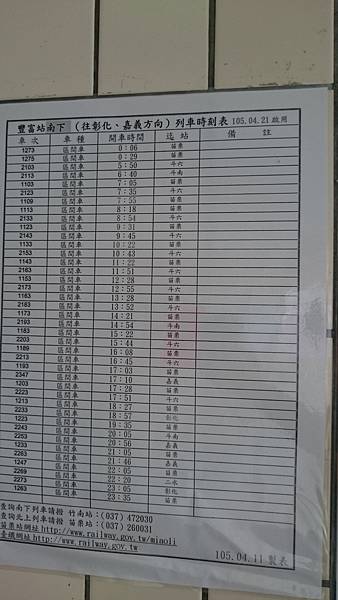 豐富站南下 (往彰化、嘉義方向) 列車時刻表 105.04.21啟用
車次 車種 開車時間 迄站 備註
1273 區間車 0:06 苗栗
1275 區間車 0:29 苗栗
2103 區間車 5:50 斗六
2113 區間車 6:40 斗南
1103 區間車 7:05 苗栗
2123 區間車 7:35 斗六
1109 區間車 7:55 苗栗
1113 區間車 8:18 苗栗
2133 區間車 8:54 斗六
1123 區間車 9:31 苗栗
2143 區間車 9:45 斗六
1133 區間車 10:22 苗栗
2153 區間車 10:43 斗六
1143 區間車 11:22 苗栗
2163 區間車 11:51 斗六
1153 區間車 12:28 苗栗
2173 區間車 12:55 斗六
1163 區間車 13:28 苗栗
2183 區間車 13:52 斗六
1173 區間車 14:21 苗栗
2193 區間車 14:54 斗南
1183 區間車 15:22 苗栗
2203 區間車 15:44 斗六
1189 區間車 16:08 苗栗
2213 區間車 16:45 斗六
1193 區間車 17:03 苗栗
2347 區間車 17:10 嘉義
1203 區間車 17:28 苗栗
2223 區間車 17:51 斗六
1213 區間車 18:27 苗栗
2233 區間車 18:57 彰化
1223 區間車 19:35 苗栗
2243 區間車 20:05 斗南
2253 區間車 20:56 嘉義
1233 區間車 21:05 苗栗
2263 區間車 21:46 嘉義
1247 區間車 22:05 苗栗
2269 區間車 22:20 二水
2273 區間車 23:05 彰化
1263 區間車 23:35 苗栗
查詢南下列車請撥 竹南站:(037) 472030
查詢北上列車請撥 苗栗站:(037) 260031
苗栗站網址http://www.railway.gov.tw/miaoli
臺鐵網址http://www.railway.gov.tw
105.04.11製表